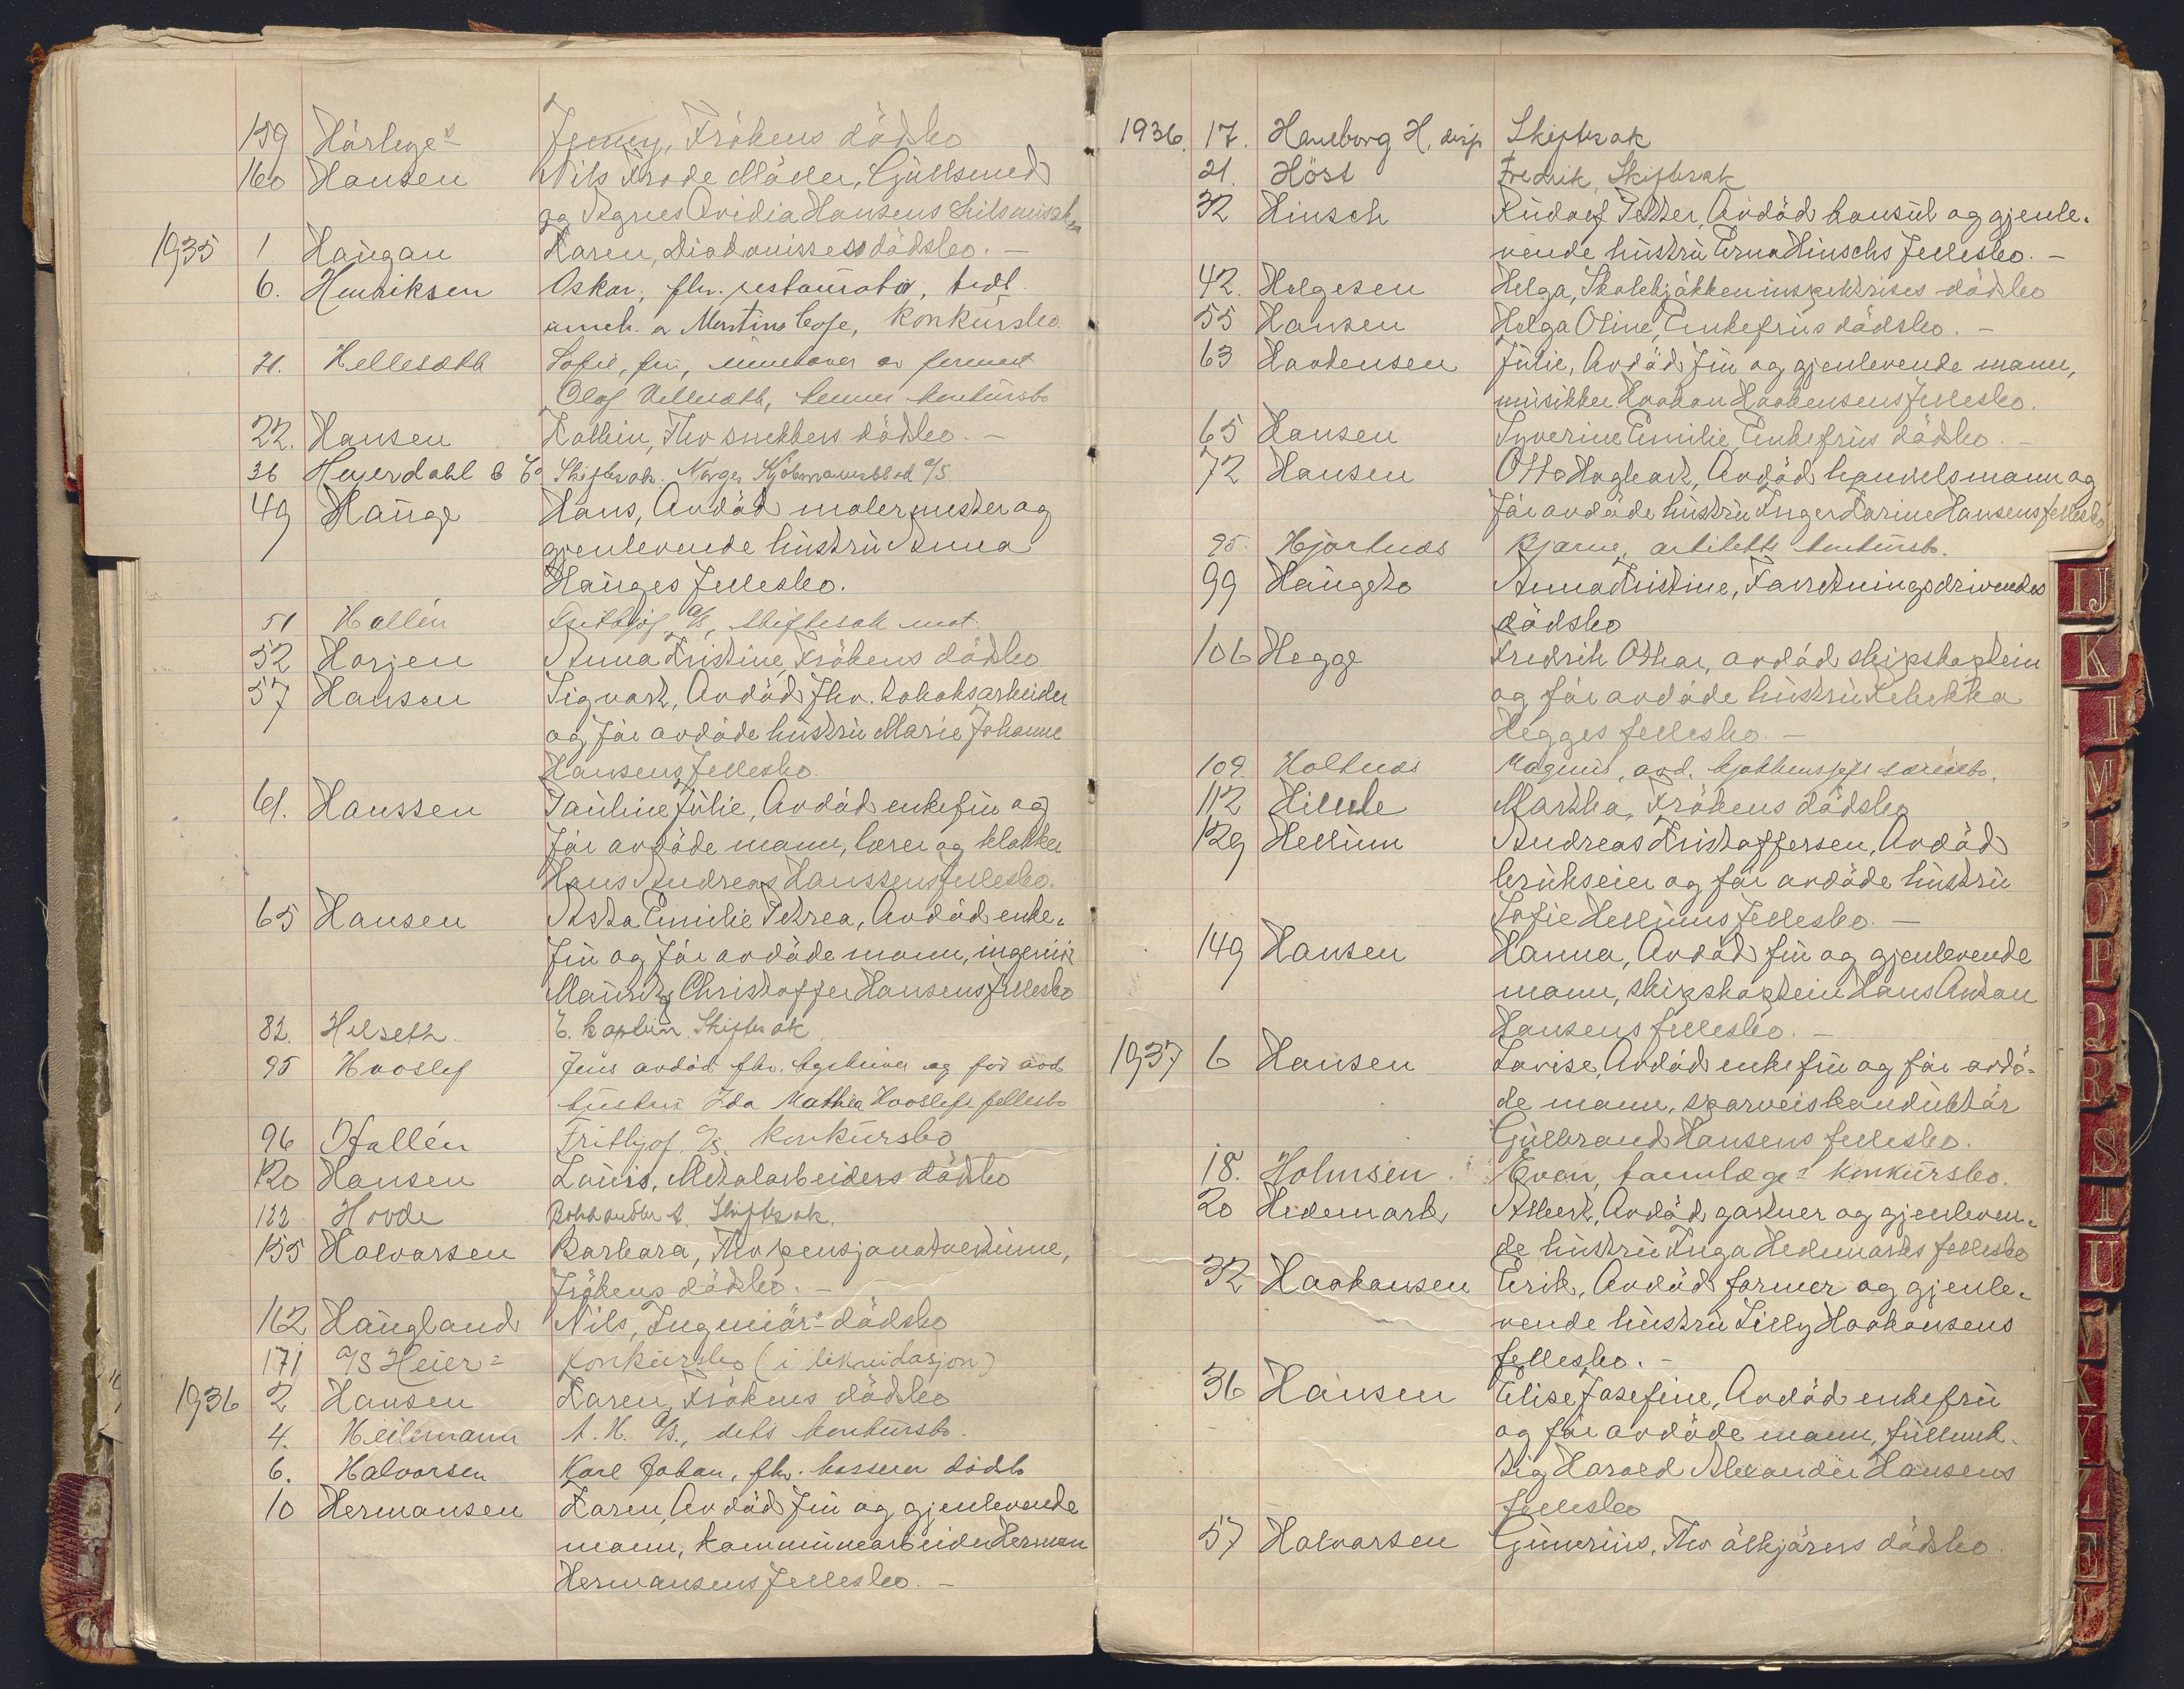 159 Hårleys Jenny, Frökens dödsbo
160 Hansen Nils Frode Möller, Gullsmed
og Agnes Ovidia Hansens
1935 1 Haugan Karen, Diakonissess dödsbo. —
6. Henriksen Oskar, fhv. restauratør, tidl.
inneh. av Martins Cafe, Konkursbo
21. Hellesæth Sofie, fru, innehaver av firmaet
Olaf Hellesæth, hennes konkursbo
22. Hansen Kathin, Fhv snekkers dödsbo. —
36 Heyerdahl & Co Skiftesak. Norges Kjøbmannsblad A/S
49 Hauge Hans, Avdöd malermester og
gjenlevende hustru Anna
Hauges fellesbo.
51 Hallén Frithjof A/S, skiftesak mot.
52 Horjen Anna Kristine, Frökens dödsbo
57 Hansen Sigvart, Avdöd fhv. tobaksarbeider
og før avdöde hustru Marie Johanne
Hansens fellesbo.
61. Hanssen Pauline Julie, Avdöd enkefru og
før avdöde mann, lærer og klokker
Hans Andreas Hanssens fellesbo.
65 Hansen Asta Emilie Petrea, Avdöd enke-
fru og før avdöde mann, ingeniör
Mauritz Christoffer Hansens fellesbo
82. Helseth E. kaptein. Skiftesak
95 Hvoslef Jens avdød fhv. byskriver og før avd.
hustru Ida Mathea Hvoslefs fellesbo
96 Hallén Frithjof A/S. Konkursbo
120 Hansen Louis, Metalarbeiders dödsbo
122 Hovde Bokhandler A. Skiftesak.
155 Halvorsen Barbara, Fhv pensjonatvertinne,
Frökens dödsbo. —
162 Haugland Nils, Ingeniör's dödsbo
171 A/S Heier = Konkursbo (i likvidasjon)
1936 2 Hansen Karen, Frökens dödsbo
4. Heilemann A. H. A/S., dets konkursbo.
6. Halvorsen Karl Johan, fhv. kasserer dødsbo
10 Hermansen Karen, Avdöd fru og gjenlevende
mann, kommunearbeider Herman
Hermansens fellesbo. —
1936. 17. Haneborg H, disp Skiftesak
21. Höst Fredrik, Skiftesak
32 Hinsch Rudolf Petter, Avdöd konsul og gjenle-
vende hustru Erna Hinschs fellesbo. —
42. Helgesen Helga, Skolekjökkeninspektrises dödsbo
55 Hansen Helga Oline, Enkefrus dödsbo. —
63 Haakensen Julie, Avdöd fru og gjenlevende mann,
musikker Haakon Haakensens fellesbo.
65 Hansen Syverine Emilie, Enkefrus dödsbo. —
72 Hansen Otto Hagbart, Avdöd handelsmann og
før avdöde hustru Inger Karine Hansens fellesbo
95. Hjortnæs Bjarne, arkitekts konkursbo.
99 Haugeto Anna Kristine, Forretningsdrivendes
dödsbo
106 Hegge Fredrik Othar, avdöd skipskaptein
og før avdöde hustru Rebekka
Hegges fellesbo. —
109. Holtnæs Magnus, avd. kjøkkensjefs særeiebo.
112 Hilmle Martha, Frökens dödsbo
129 Hellum Andreas Kristoffersen, Avdöd
brukseier og før avdöde hustru
Sofie Hellums fellesbo. —
149 Hansen Hanna, Avdöd fru og gjenlevende
mann, skipskaptein Hans Anton
Hansens fellesbo. —
1937 6 Hansen Lovise, Avdöd enkefru og før avdö-
de mann, sporveiskonduktör
Gulbrand Hansens fellesbo.
18. Holmsen Even, tannlæges konkursbo.
20 Hedemark Albert, Avdöd gartner og gjenleven-
de hustru Inga Hedemarks fellesbo
32 Haakonsen Erik, Avdöd farmer og gjenle-
vende hustru Lilly Haakonsens
fellesbo. —
36 Hansen Elise Josefine, Avdöd enkefru
og før avdöde mann, fullmek-
tig Harald Alexander Hansens
fellesbo
57 Halvorsen Gunerius, Fhv ölkjörers dödsbo
IJ
K
I
M
N
O
P
Q
R
S
T
U
V